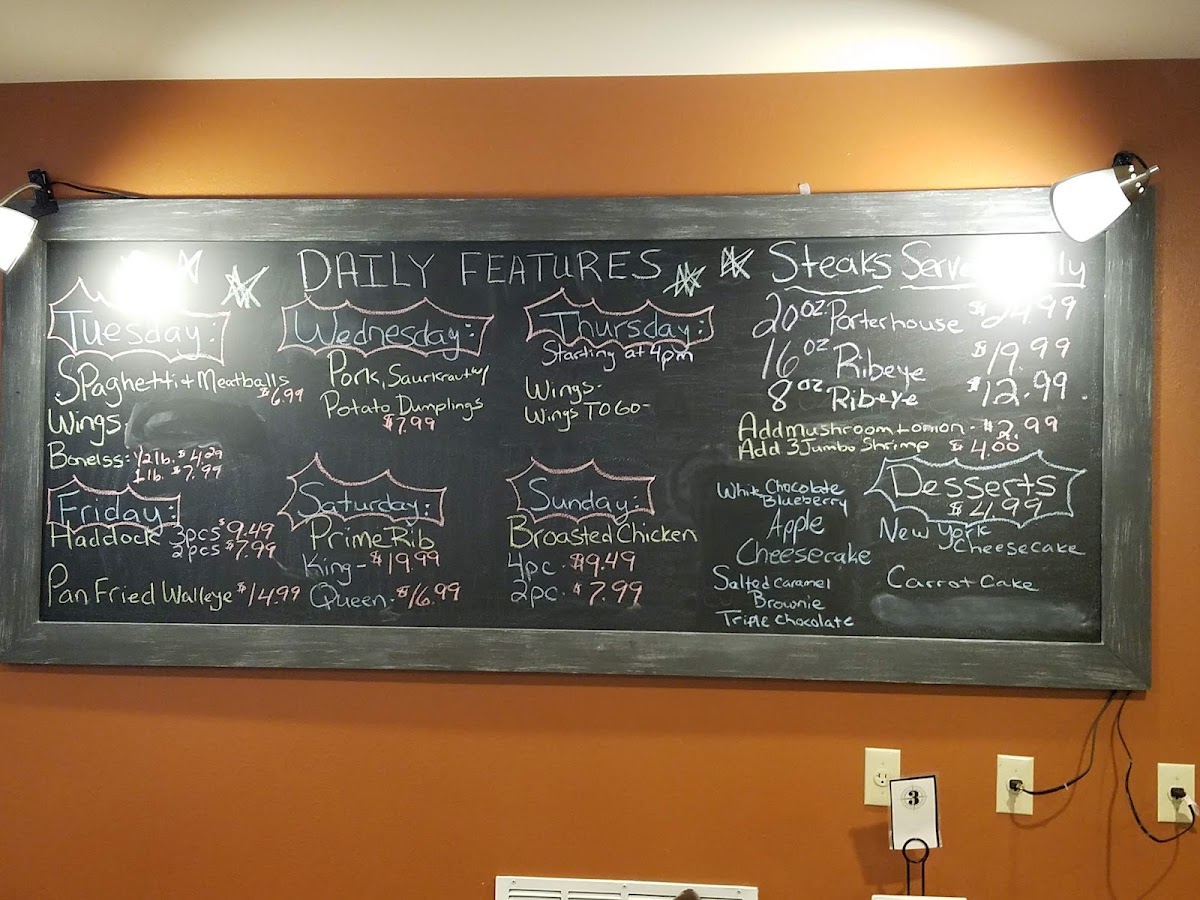 DAILY FEATURES
Tuesday:
Spaghetti + Meatballs
$6.99
Wings.
Bonelss: 1/2 lb. $4.29
1 lb. $7.99
Wednesday:
Pork, Saurkraut w/
Potato Dumplings
$7.99
Thursday:
Starting at 4pm
Wings-
Wings TO GO-
Friday:
Haddock 3pcs $9.49
2pcs $7.99
Pan Fried Walleye $14.99
Saturday:
Prime Rib
King - $19.99
Queen - $16.99
Sunday:
Broasted Chicken
4pc. $9.49
2pc. $7.99
Steaks
20oz. Porterhouse $24.99
16oz Ribeye $19.99
8oz Ribeye $12.99
Add Mushroom + onion - $2.99
Add 3 Jumbo Shrimp $4.00
Desserts
$4.99
White Chocolate
Blueberry
Apple
Cheesecake
Salted Caramel
Brownie
Triple Chocolate
New York
Cheesecake
Carrot Cake
3